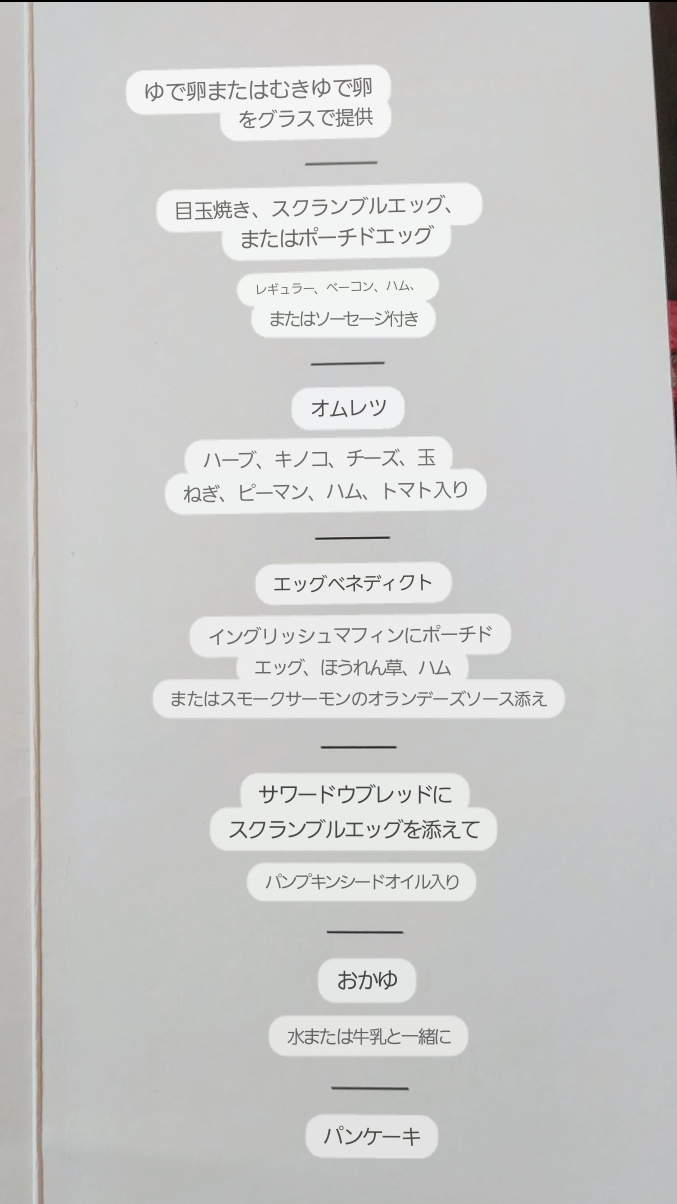 ゆで卵またはむきゆで卵
をグラスで提供
目玉焼き、スクランブルエッグ、
またはポーチドエッグ
レギュラー、ベーコン、ハム、
またはソーセージ付き
オムレツ
ハーブ、キノコ、チーズ、玉
ねぎ、ピーマン、ハム、トマト入り
エッグベネディクト
イングリッシュマフィンにポーチド
エッグ、ほうれん草、ハム
またはスモークサーモンのオランデーズソース添え
サワードウブレッドに
スクランブルエッグを添えて
パンプキンシードオイル入り
おかゆ
水または牛乳と一緒に
パンケーキ